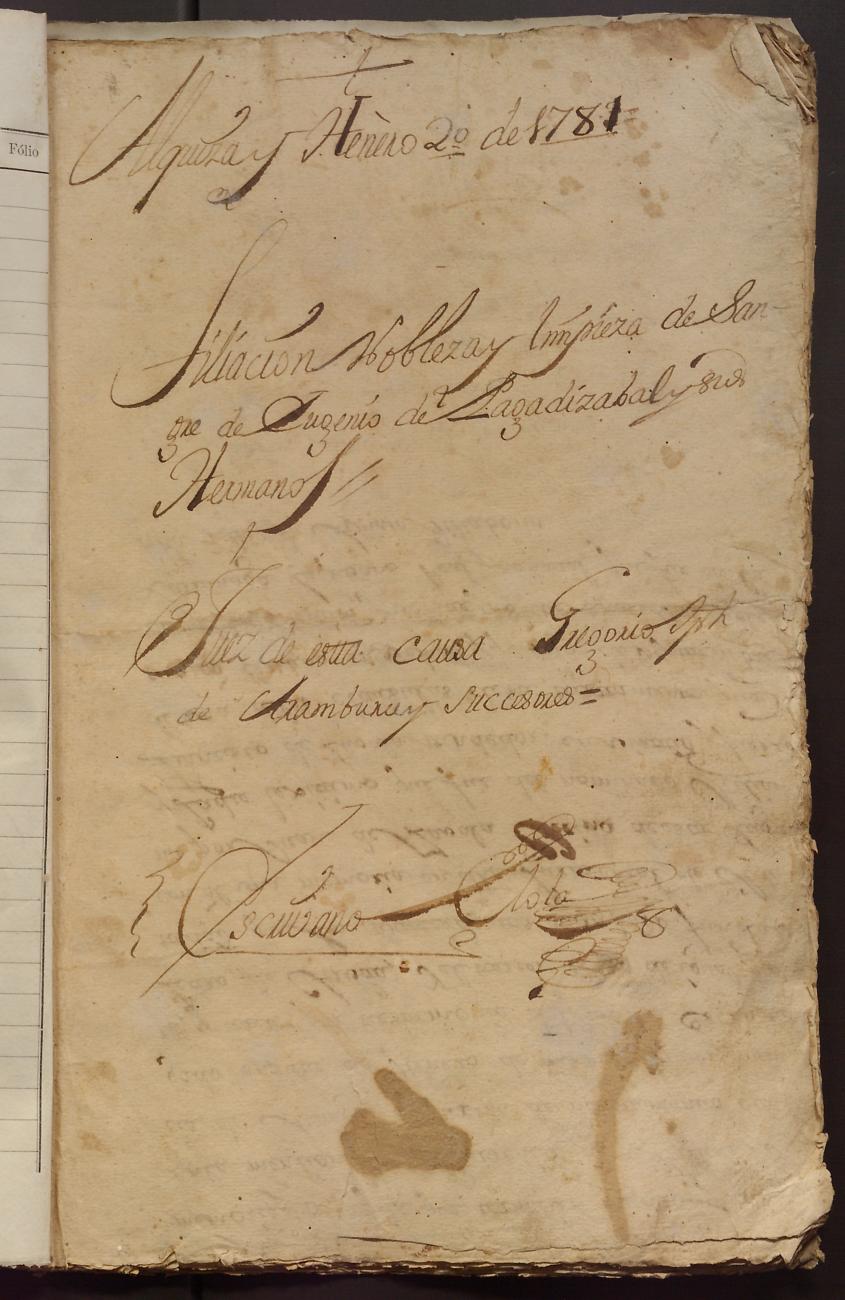 Fólio
Alquiza y Henero 20 de 1781
Filiacion Nobleza y limpieza de San-
gre de Eugenio de Lagadizabal y sus
Hermanos
Juez de esta causa Gregorio Jph
de Aramburu y Succesores =
Escribano